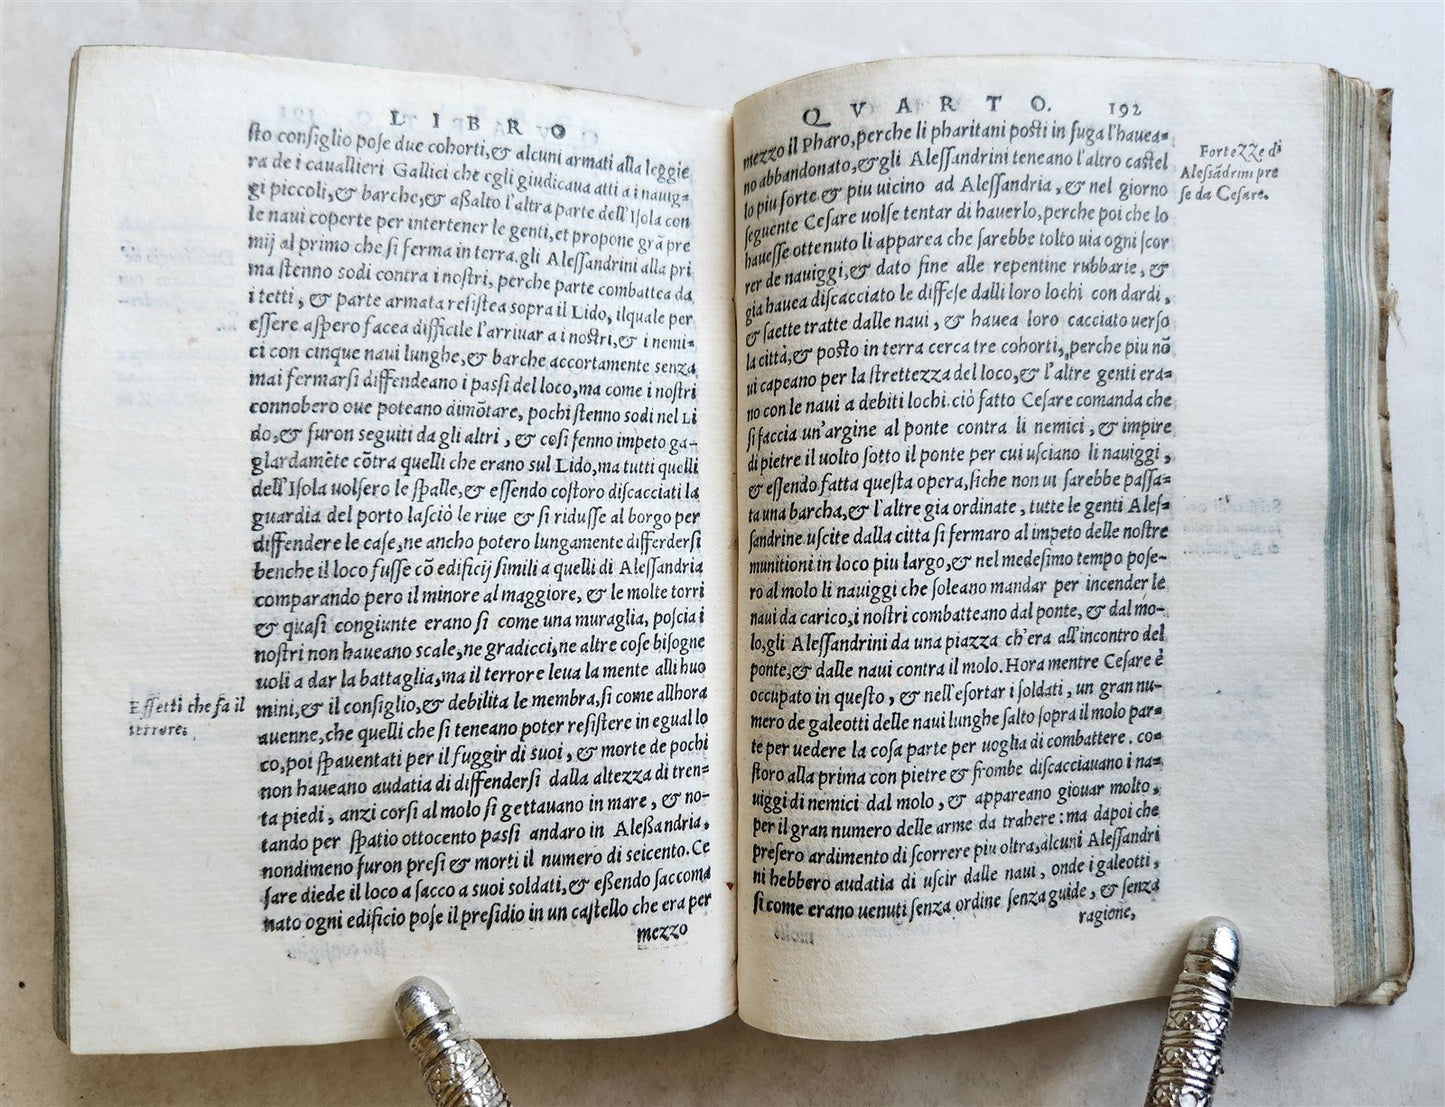 LIBRO
sto consiglio pose due cohorti, & alcuni armati alla leggie
ra de i cauallieri Gallici che egli giudicaua atti a i nauig-
gi piccoli, & barche, & aßalto l'altra parte dell'Isola con
le naui coperte per intertener le genti, et propone grā pre
mij al primo che si ferma in terra. gli Alessandrini alla pri
ma stenno sodi contra i nostri, perche parte combattea da
i tetti, & parte armata resistea sopra il Lido, ilquale per
essere aspero facea difficile l'arriuar a i nostri, & i nemi-
ci con cinque naui lunghe, & barche accortamente senza
mai fermarsi diffendeano i passi del loco, ma come i nostri
connobero oue poteano dimōtare, pochi stenno sodi nel Li
do, & furon seguiti da gli altri, & cosi fenno impeto ga-
glardamēte cōtra quelli che erano sul Lido, ma tutti quelli
dell'Isola uolsero le spalle, & essendo costoro discacciati la
guardia del porto lasciò le riue & si ridusse al borgo per
diffendere le case, ne ancho potero lungamente differdersi
benche il loco fusse cō edificij simili a quelli di Alessandria
comparando pero il minore al maggiore, & le molte torri
& quasi congiunte erano si come una muraglia, poscia i
nostri non haueano scale, ne gradicci, ne altre cose bisogne
uoli a dar la battaglia, ma il terrore leua la mente alli huo
mini, & il consiglio, & debilita le membra, si come allhora
auenne, che quelli che si teneano poter resistere in egual lo
co, poi spauentati per il fuggir di suoi, & morte de pochi
non haueano audatia di diffendersi dalla altezza di tren-
ta piedi, anzi corsi al molo si gettauano in mare, & no-
tando per spatio ottocento passi andaro in Aleßandria,
nondimeno furon presi & morti il numero di seicento. Ce
sare diede il loco a sacco a suoi soldati, & eßendo saccoma
nato ogni edificio pose il presidio in un castello che era per
mezzo
Effetti che fa il
terrore.
QVARTO. 192
mezzo il Pharo, perche li pharitani posti in fuga l'hauea-
no abbandonato, & gli Alessandrini teneano l'altro castel
lo piu forte & piu uicino ad Alessandria, & nel giorno
seguente Cesare uolse tentar di hauerlo, perche poi che lo
hauesse ottenuto li apparea che sarebbe tolto uia ogni scor
rer de nauiggi, & dato fine alle repentine rubbarie, &
gia hauea discacciato le diffese dalli loro lochi con dardi,
& saette tratte dalle naui, & hauea loro cacciato uerso
la città, & posto in terra cerca tre cohorti, perche piu nō
ui capeano per la strettezza del loco, & l'altre genti era-
no con le naui a debiti lochi. ciò fatto Cesare comanda che
si faccia un'argine al ponte contra li nemici, & impire
di pietre il uolto sotto il ponte per cui usciano li nauiggi,
& essendo fatta questa opera, siche non ui sarebbe passa-
ta una barcha, & l'altre gia ordinate, tutte le genti Ales-
sandrine uscite dalla citta si fermaro al impeto delle nostre
munitioni in loco piu largo, & nel medesimo tempo pose-
ro al molo li nauiggi che soleano mandar per incender le
naui da carico, i nostri combatteano dal ponte, & dal mo-
lo, gli Alessandrini da una piazza ch'era all'incontro del
ponte, & dalle naui contra il molo. Hora mentre Cesare è
occupato in questo, & nell'esortar i soldati, un gran nu-
mero de galeotti delle naui lunghe salto sopra il molo par-
te per uedere la cosa parte per uoglia di combattere. co-
storo alla prima con pietre & frombe discacciauano i na-
uiggi di nemici dal molo, & appareano giouar molto,
per il gran numero delle arme da trahere: ma dapoi che
presero ardimento di scorrere piu oltra, alcuni Alessandri
ni hebbero audatia di uscir dalle naui, onde i galeotti,
si come erano uenuti senza ordine senza guide, & senza
ragione,
Fortezze di
Aleßādrini pre
se da Cesare.